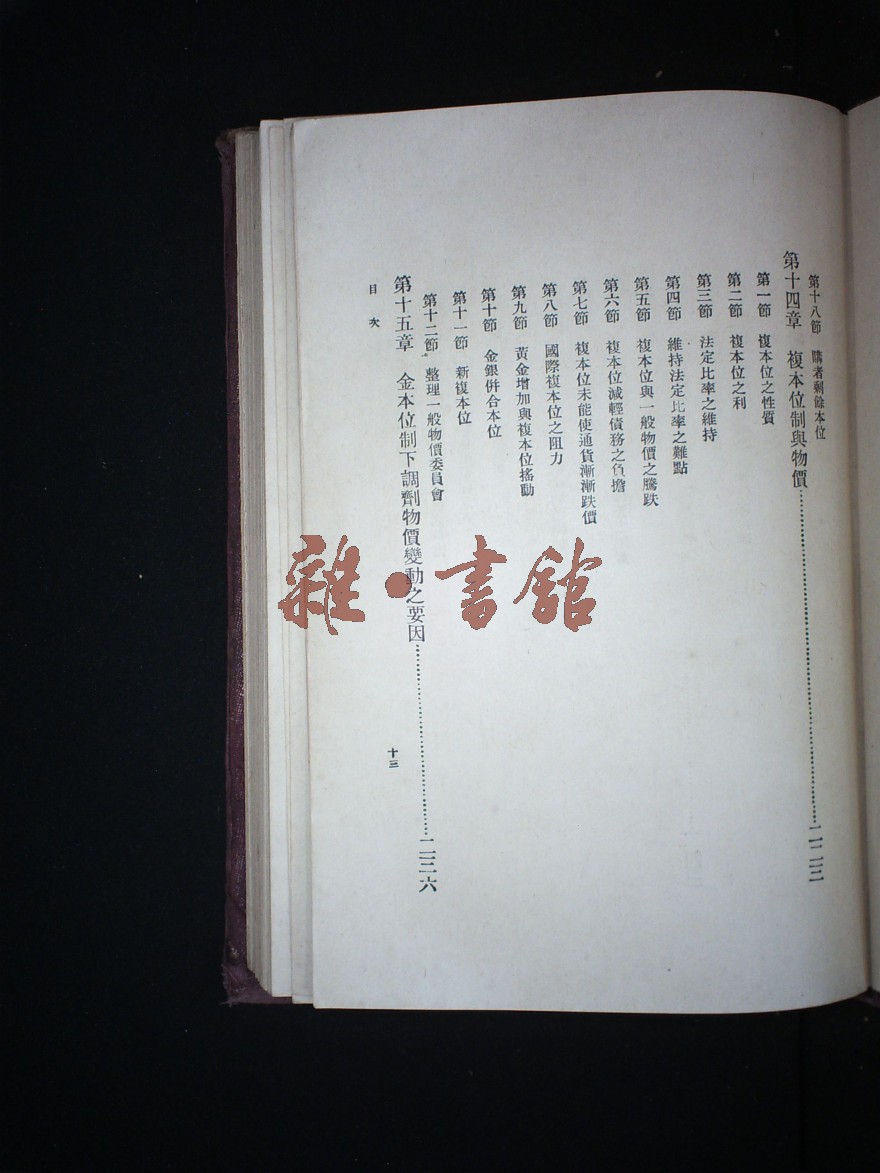 第十八節 購者剩餘本位
第十四章 複本位制與物價
第一節 複本位之性質
第二節 複本位之利
第三節 法定比率之維持
第四節 維持法定比率之難點
第五節 複本位與一般物價之騰跌
第六節 複本位減輕債務之負擔
第七節 複本位未能使通貨漸漸跌價
第八節 國際複本位之阻力
第九節 黃金增加與複本位搖動
第十節 金銀併合本位
第十一節 新複本位
第十二節 整理一般物價委員會
第十五章 金本位制下調劑物價變動之要因
目次
十三
雜·書館